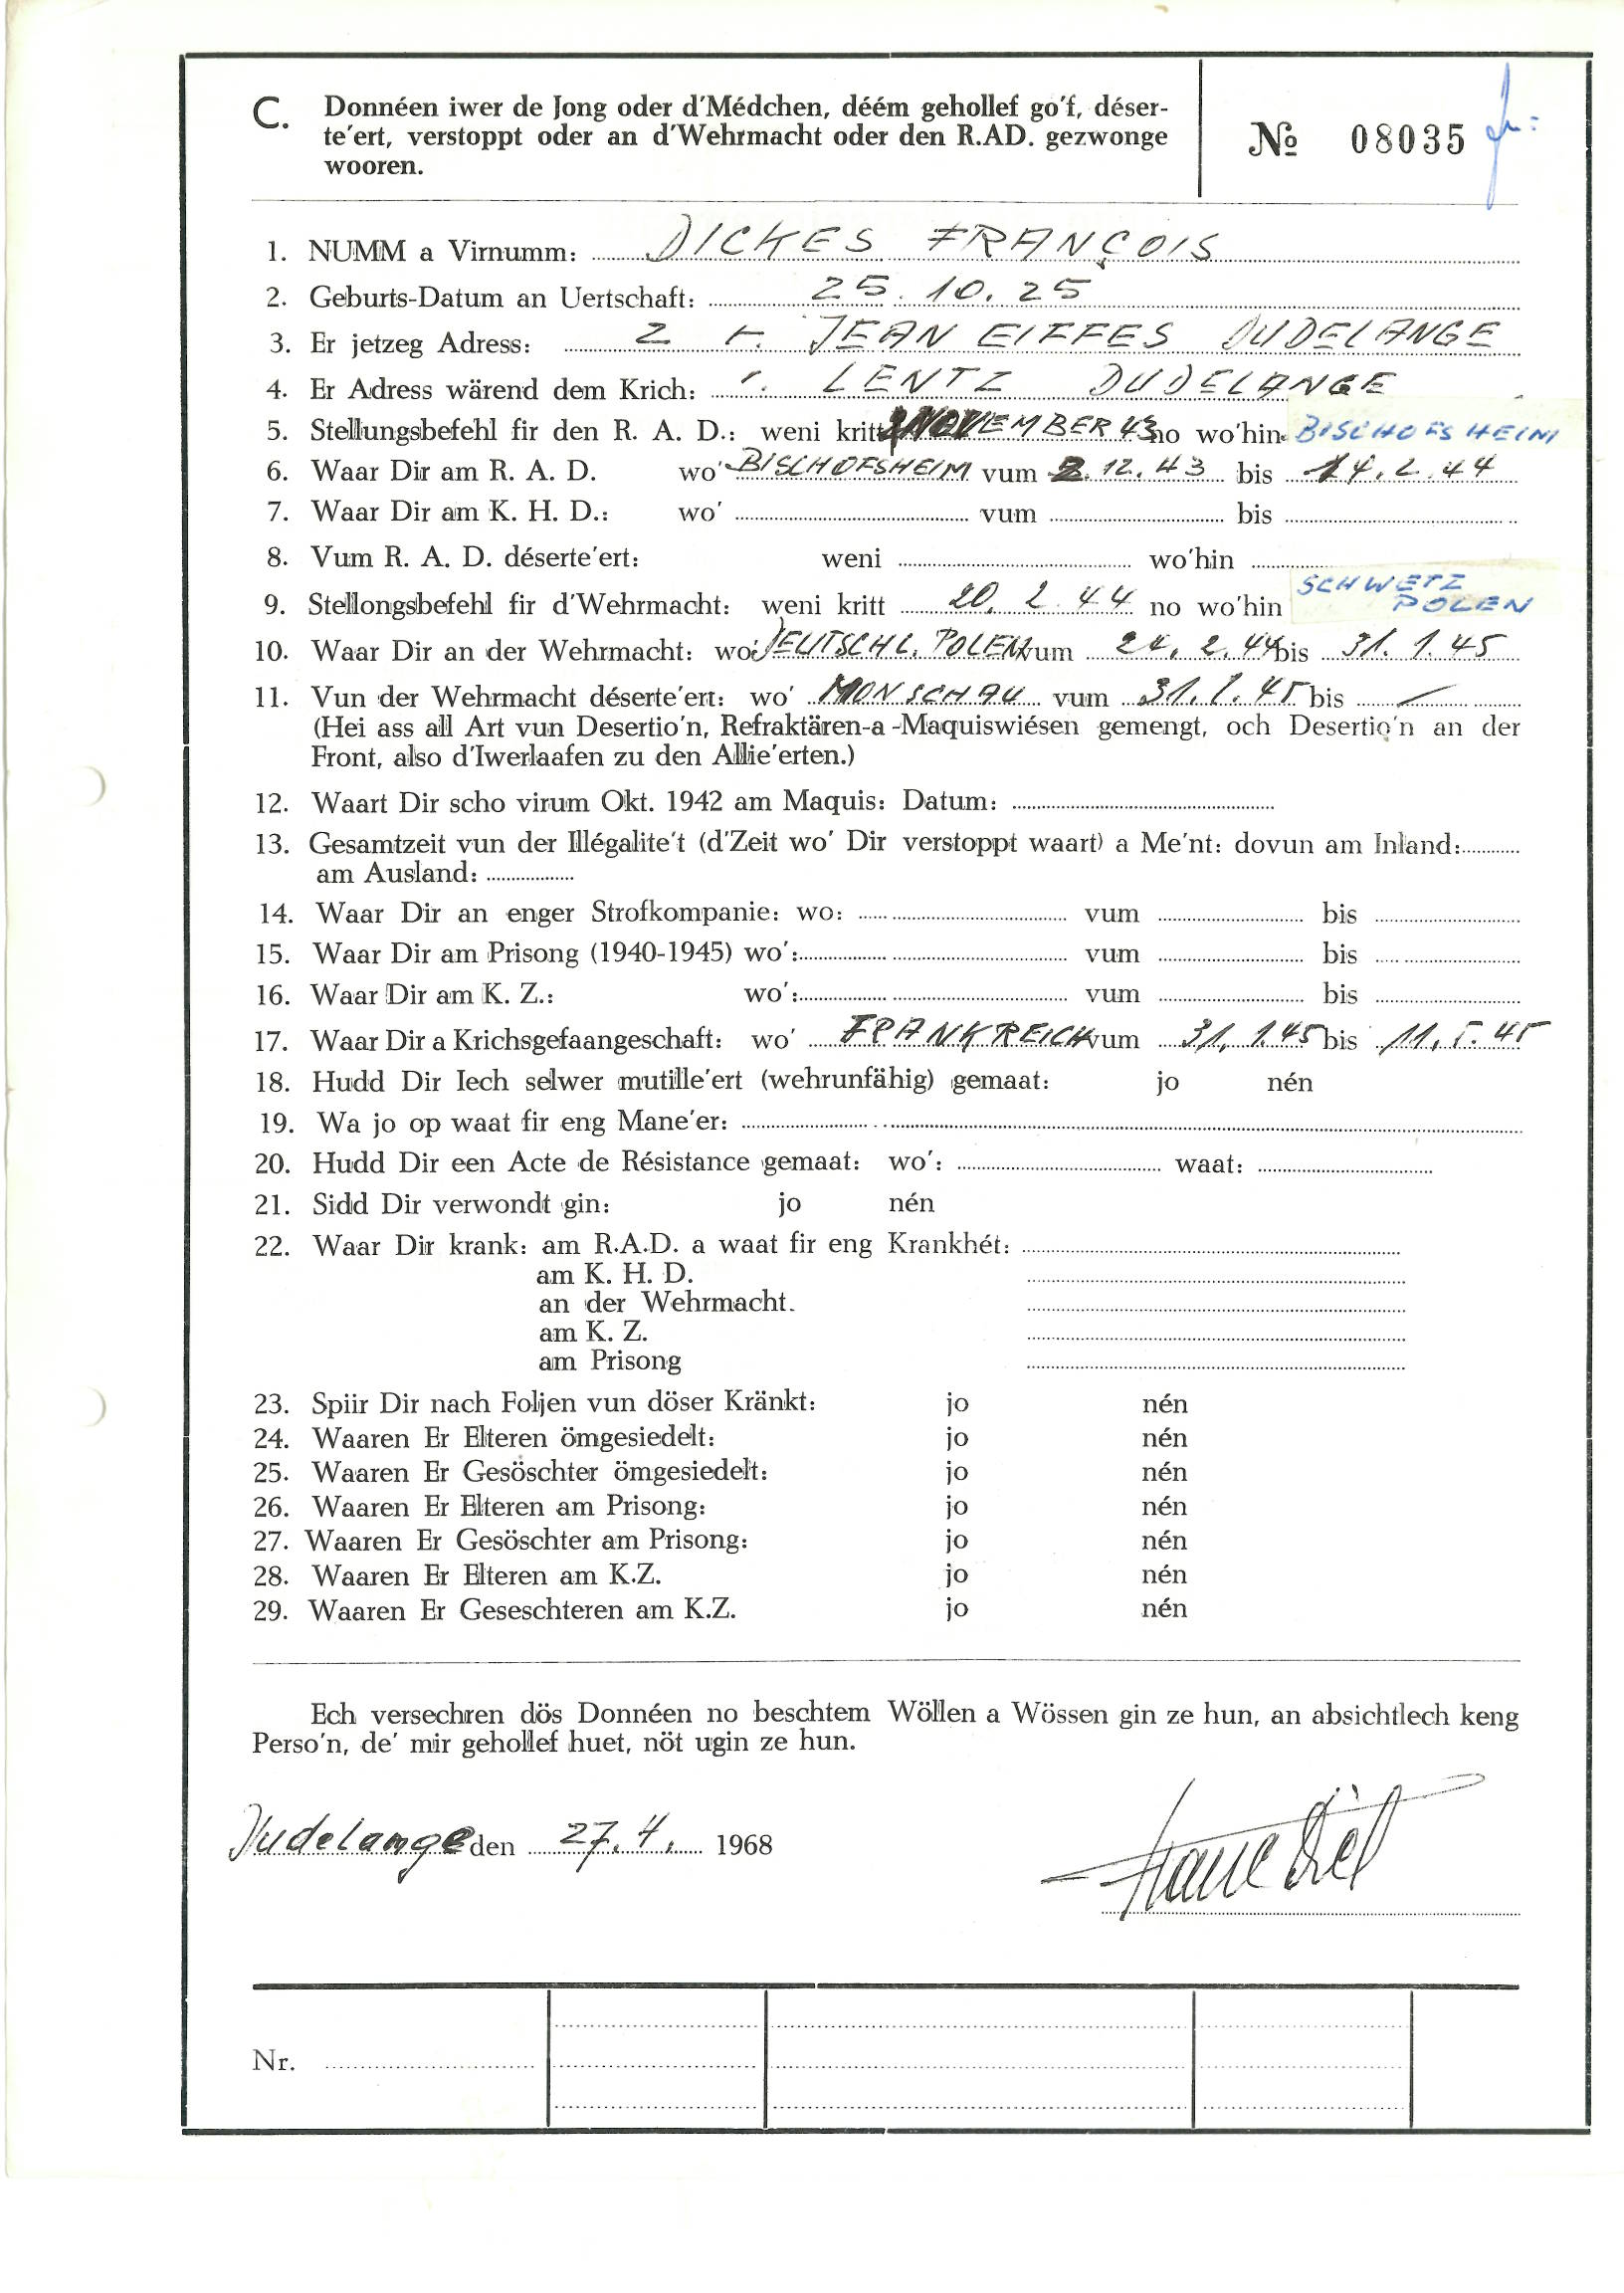 C. Donnéen iwer de Jong oder d'Médchen, déém gehollef go'f, déser-
te'ert, verstoppt oder an d'Wehrmacht oder den R.AD. gezwonge
wooren.
№ 08035
1. NUMM a Virnumm: DICKES FRANÇOIS
2. Geburts-Datum an Uertschaft: 25.10.25
3. Er jetzeg Adress: 2 r. JEAN EIFFES DUDELANGE
4. Er Adress wärend dem Krich: r. LENTZ DUDELANGE
5. Stellungsbefehl fir den R. A. D.: weni kritt NOVEMBER 43 no wo'hin BISCHOFSHEIM
6. Waar Dir am R. A. D. wo' BISCHOFSHEIM vum 2.12.43 bis 14.2.44
7. Waar Dir am K. H. D.: wo' vum bis
8. Vum R. A. D. déserte'ert: weni wo'hin
9. Stellongsbefehl fir d'Wehrmacht: weni kritt 20.2.44 no wo'hin SCHWETZ POLEN
10. Waar Dir an der Wehrmacht: wo: DEUTSCHL. POLEN vum 24.2.44 bis 31.1.45
11. Vun der Wehrmacht déserte'ert: wo' MONSCHAU vum 31.1.45 bis —
(Hei ass all Art vun Desertio'n, Refraktären-a -Maquiswiésen gemengt, och Desertio'n an der
Front, also d'Iwerlaafen zu den Allie'erten.)
12. Waart Dir scho virum Okt. 1942 am Maquis: Datum:
13. Gesamtzeit vun der Illégalite't (d'Zeit wo' Dir verstoppt waart) a Me'nt: dovun am Inland:
am Ausland:
14. Waar Dir an enger Strofkompanie: wo: vum bis
15. Waar Dir am Prisong (1940-1945) wo': vum bis
16. Waar Dir am K. Z.: wo': vum bis
17. Waar Dir a Krichsgefaangeschaft: wo' FRANKREICH vum 31.1.45 bis 11.5.45
18. Hudd Dir Iech selwer mutille'ert (wehrunfähig) gemaat: jo nén
19. Wa jo op waat fir eng Mane'er:
20. Hudd Dir een Acte de Résistance gemaat: wo': waat:
21. Sidd Dir verwondt gin: jo nén
22. Waar Dir krank: am R.A.D. a waat fir eng Krankhét:
am K. H. D.
an der Wehrmacht.
am K. Z.
am Prisong
23. Spiir Dir nach Foljen vun döser Kränkt: jo nén
24. Waaren Er Elteren ömgesiedelt: jo nén
25. Waaren Er Gesöschter ömgesiedelt: jo nén
26. Waaren Er Elteren am Prisong: jo nén
27. Waaren Er Gesöschter am Prisong: jo nén
28. Waaren Er Elteren am K.Z. jo nén
29. Waaren Er Geseschteren am K.Z. jo nén
Ech versechren dös Donnéen no beschtem Wöllen a Wössen gin ze hun, an absichtlech keng
Perso'n, de' mir gehollef huet, nöt ugin ze hun.
Dudelange den 27.4. 1968
Nr.